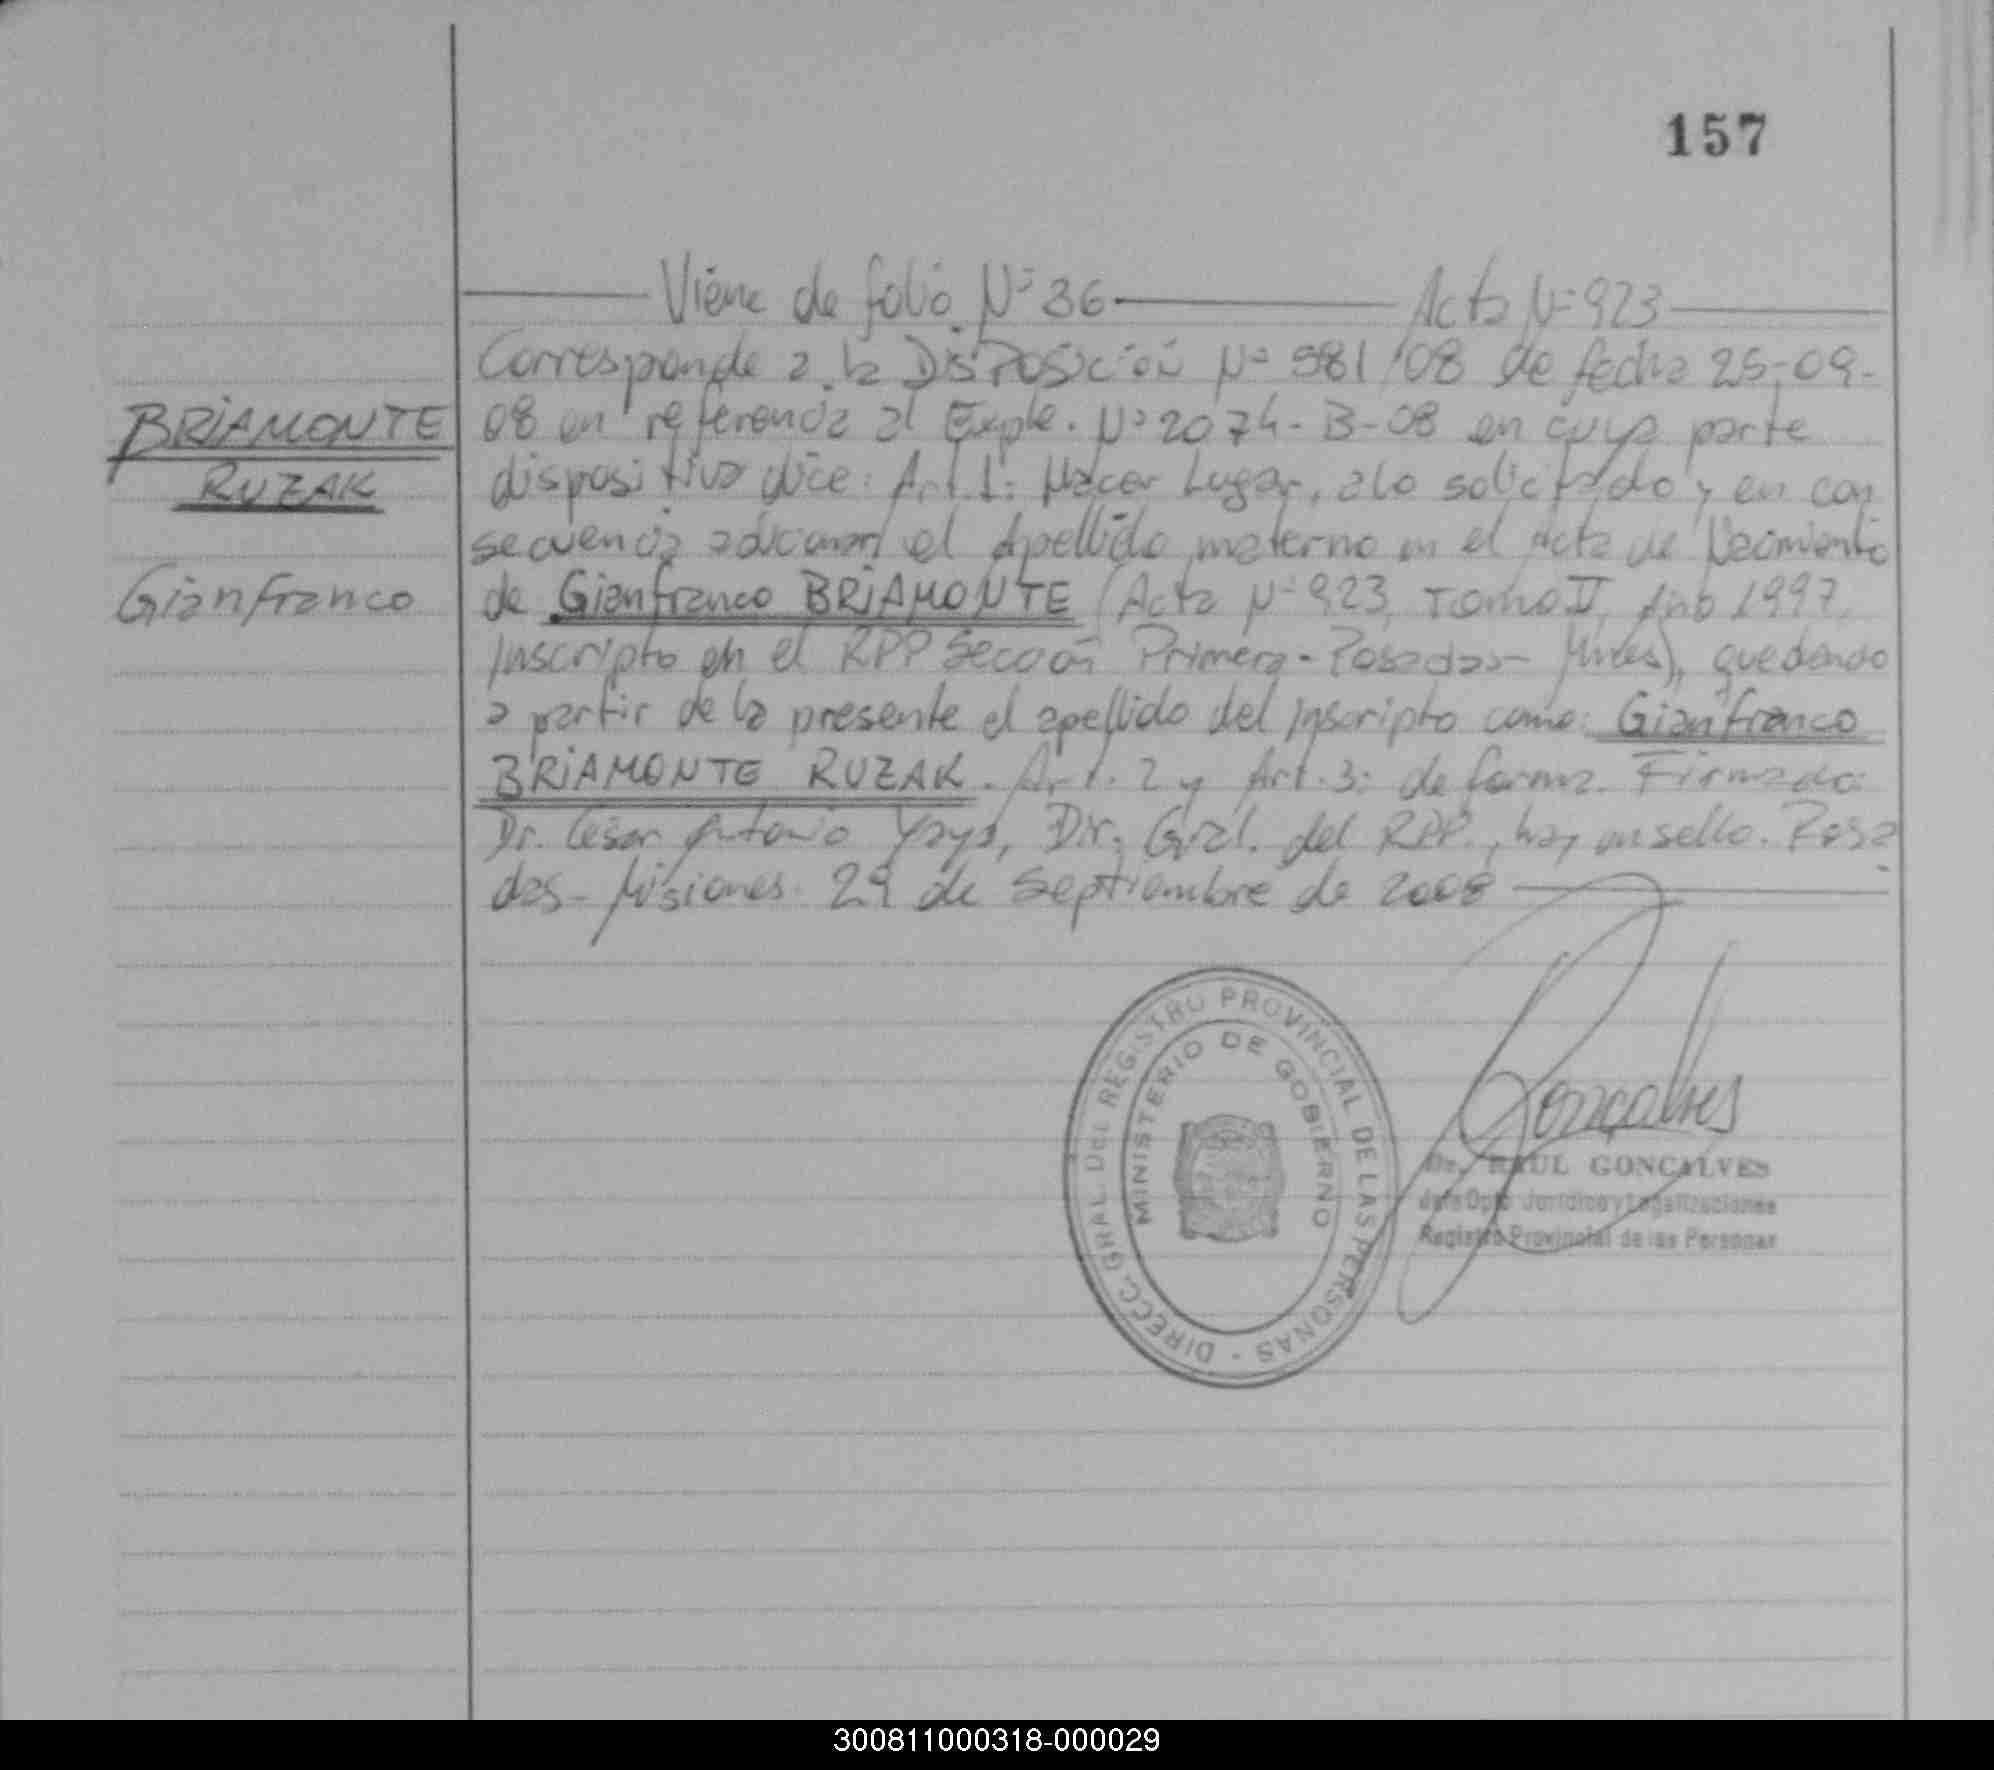 157
Viene de folio Nº 36 Acta Nº 923
Corresponde a la Disposición Nº 581/08 de fecha 25-09-
BRIAMONTE
08 en referencia al Expte. Nº 2074-B-08 en cuya parte
RUZAK
dispositiva dice: Art. 1: Hacer Lugar, a lo solicitado y en con
secuencia adicionar el Apellido materno en el Acta de Nacimiento
Gianfranco
de Gianfranco BRIAMONTE (Acta Nº 923, Tomo II, Año 1997,
Inscripto en el RPP Sección Primera - Posadas - Mnes), quedando
a partir de la presente el apellido del inscripto como: Gianfranco
BRIAMONTE RUZAK. Art. 2 y Art. 3: de forma. Firmado:
Dr. César Antonio Yaya, Dir. Gral. del RPP., hay un sello. Posa
das - Misiones 29 de Septiembre de 2008
DIRECC. GRAL. DEL REGISTRO PROVINCIAL DE LAS PERSONAS -
MINISTERIO DE GOBIERNO
Gonçalves
Dr. RAUL GONCALVES
Jefe Dpto Jurídico y Legalizaciones
Registro Provincial de las Personas
300811000318-000029